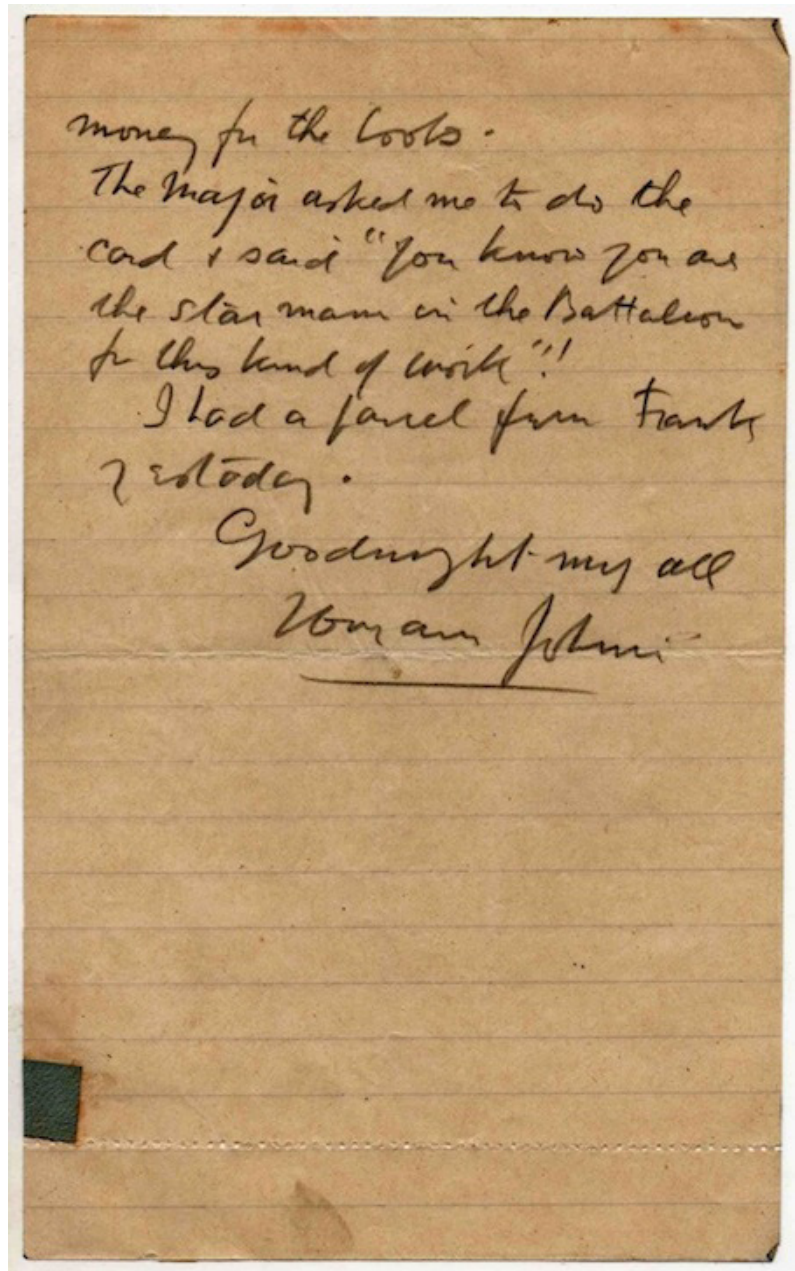 money for the
The Major asked me to do the
card & said "you know you are
the star man in the Battalion
for this kind of work"!
I had a parcel from Frank
yesterday.
Goodnight my all